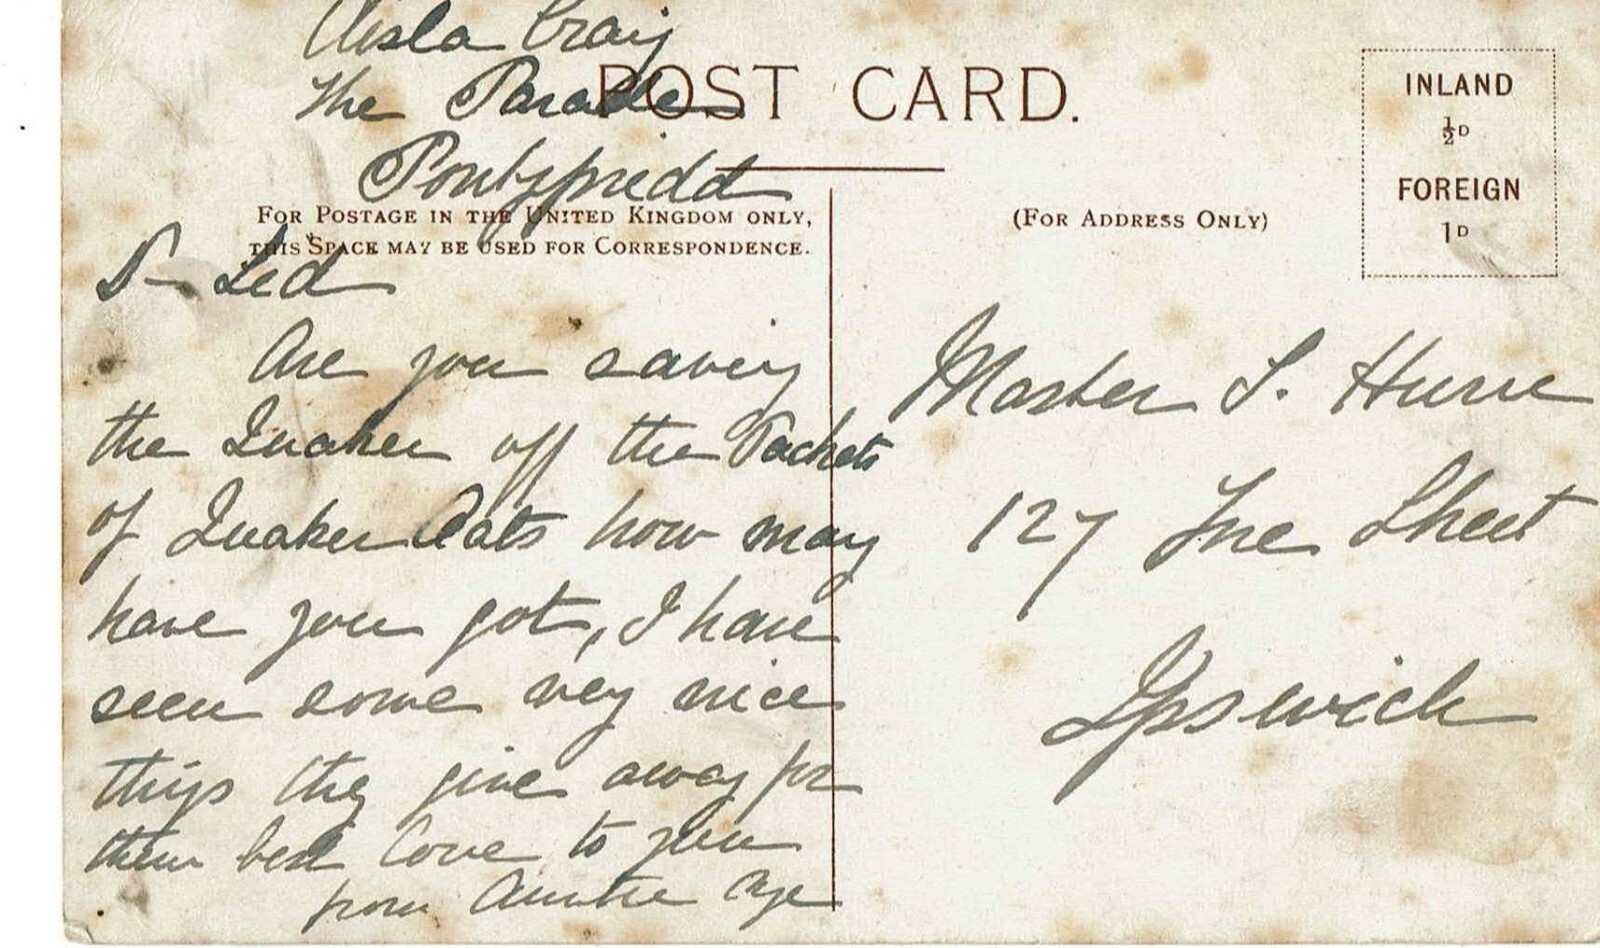 Aisla Craig
The Parade
Pontypridd
POST CARD.
FOR POSTAGE IN THE UNITED KINGDOM ONLY,
THIS SPACE MAY BE USED FOR CORRESPONDENCE.
(FOR ADDRESS ONLY)
INLAND
½D
FOREIGN
1D
D- Ted
Are you saving
the Quaker off the Packets
of Quaker Oats how many
have you got, I have
seen some very nice
things they give away for
them best love to you
from Auntie
Master T. Hurre
127 Street
Ipswich